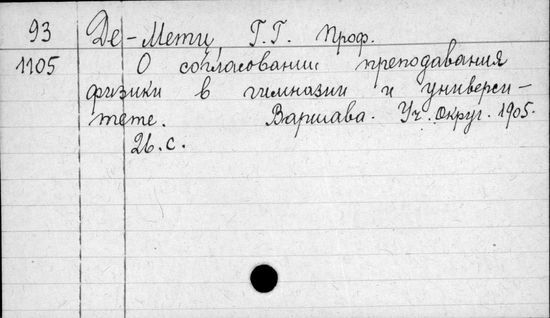 93 Де-Метц Г.Г. Проф.
1105 О согласовании преподавания
физики в гимназии и универси-
тете. Варшава. Уч. округ. 1905.
26. с.